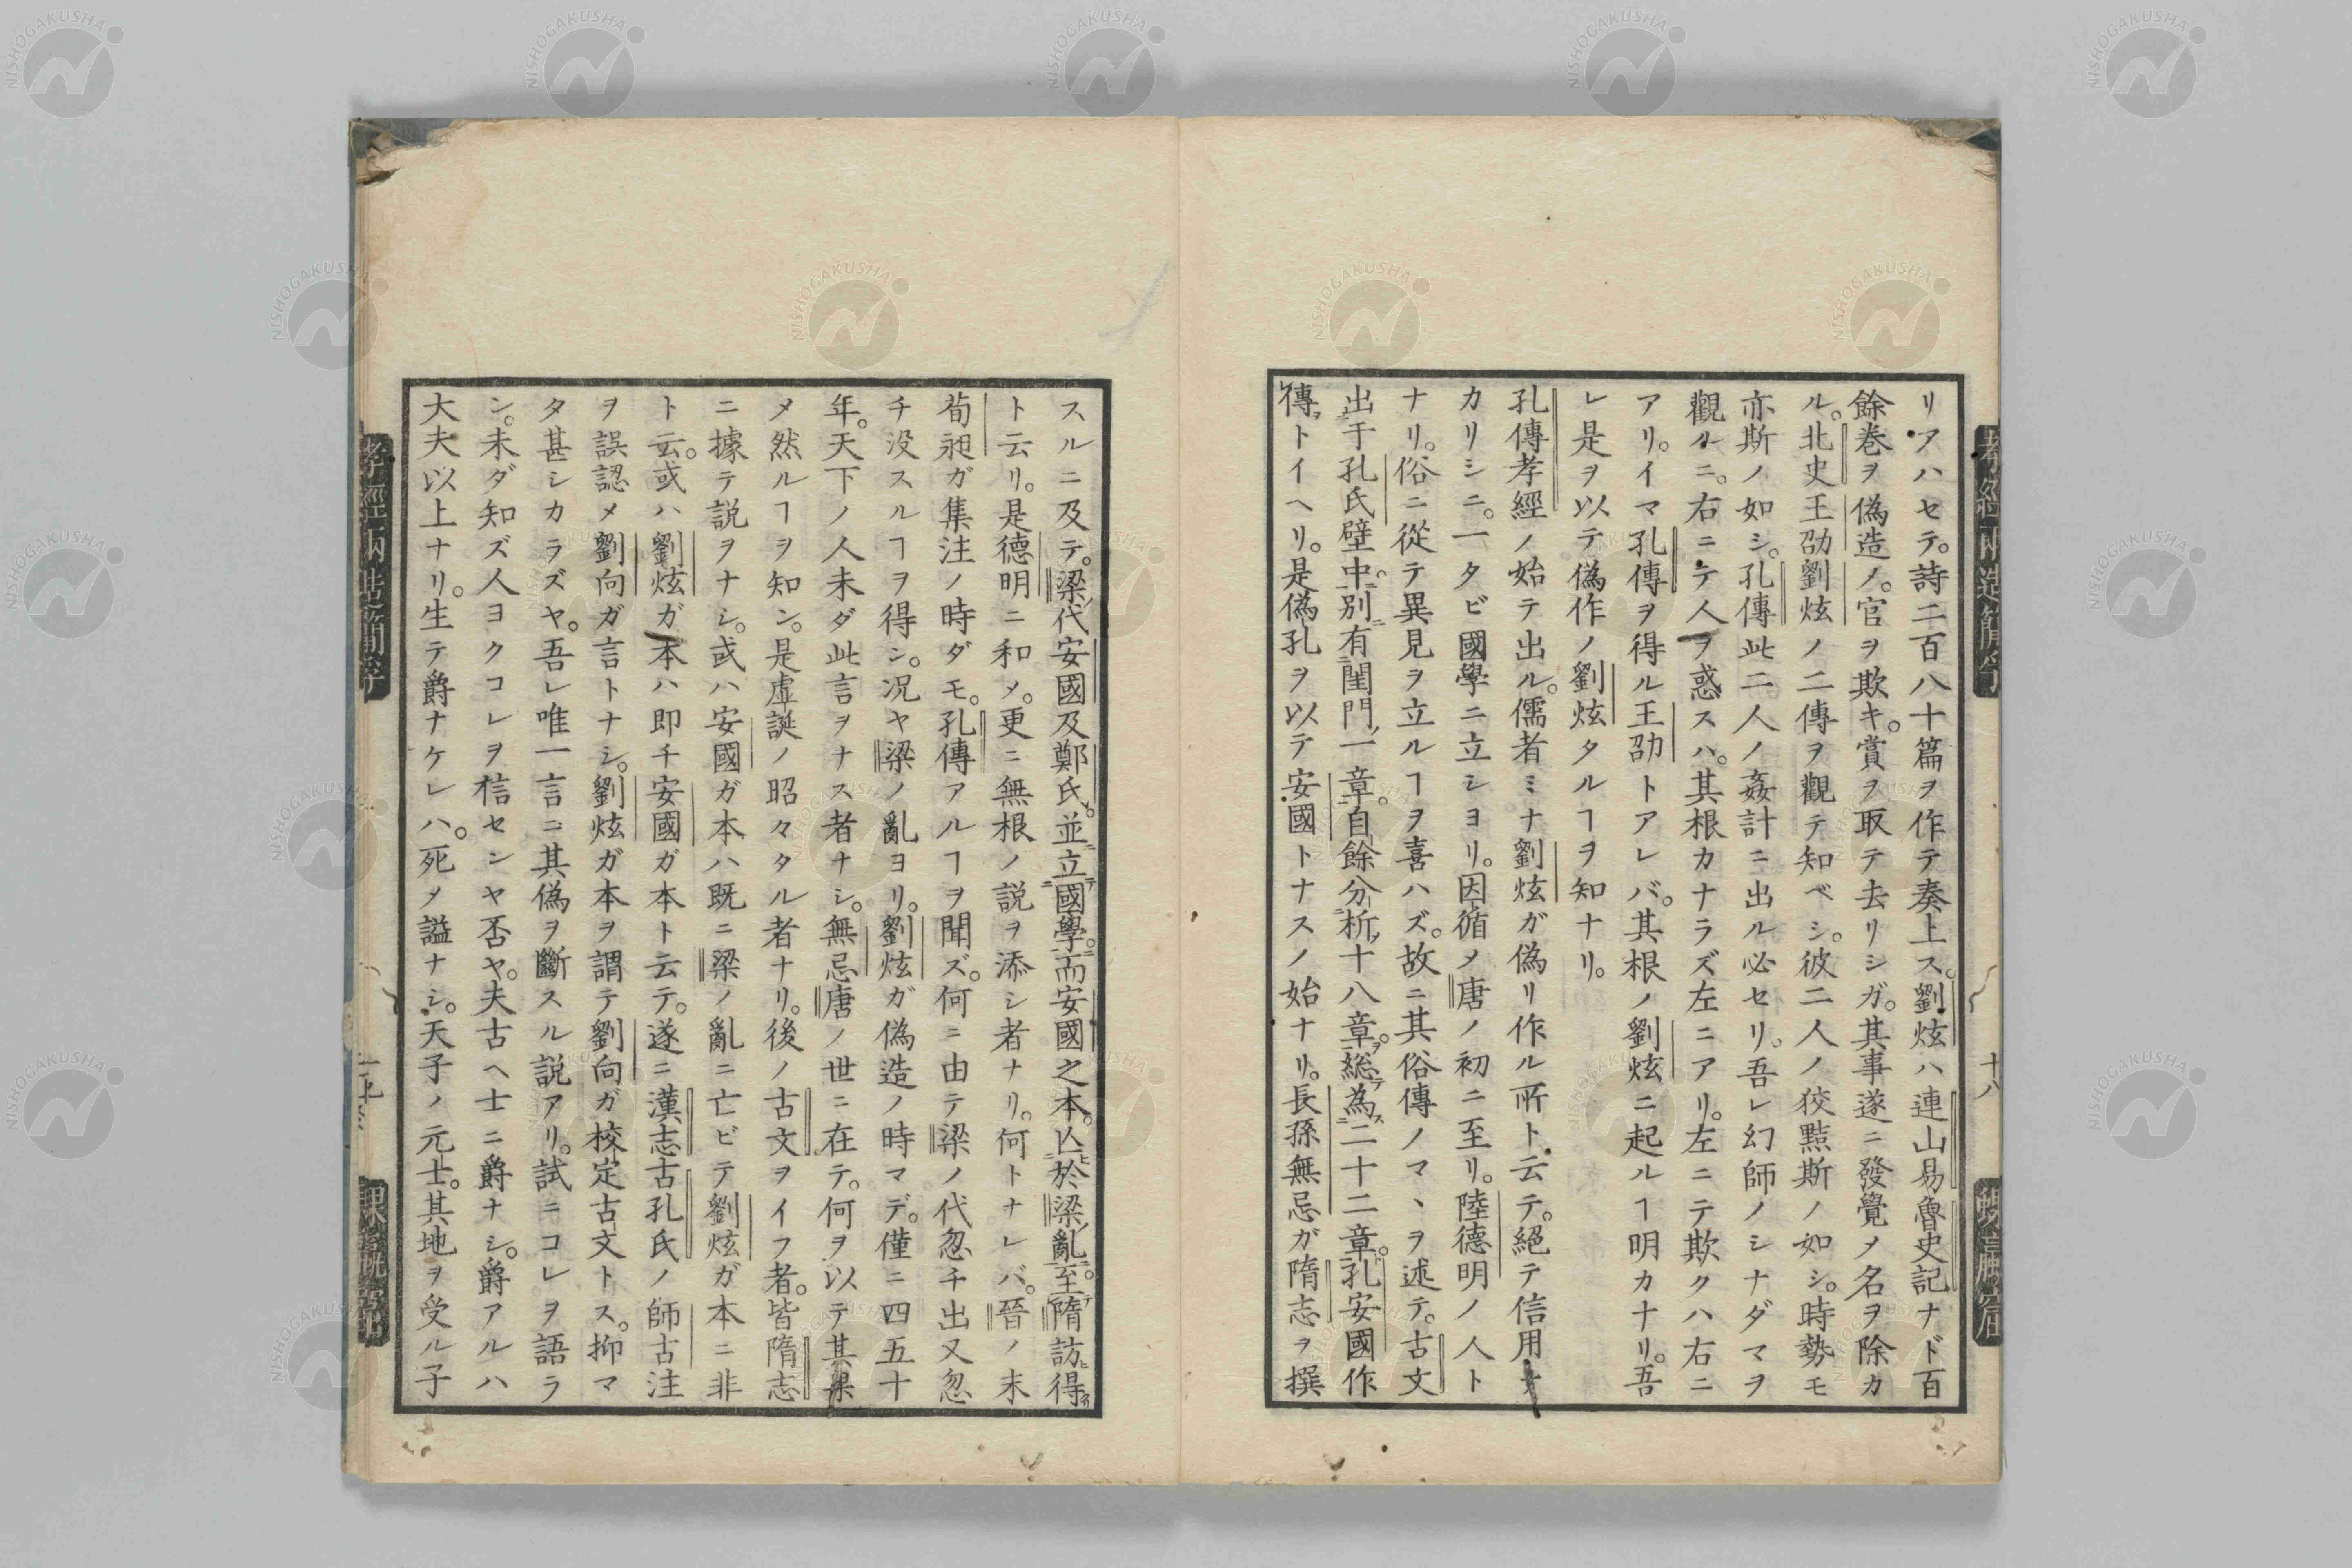 リアハセテ。詩二百八十篇ヲ作テ奏上ス。劉炫ハ連山易魯史記ナド百
餘巻ヲ偽造ノ。官ヲ欺キ。賞ヲ取テ去リシガ。其事遂ニ發覺メ名ヲ除カ
ル。北史王劭劉炫ノ二傳ヲ觀テ知ベシ。彼二人ノ狡黠斯ノ如シ。時勢モ
亦斯ノ如シ。孔傳此二人ノ姦計ニ出ル必セリ。吾レ幻師ノシナダマヲ
觀ルニ。右ニテ人ヲ惑スハ。其根カナラズ左ニアリ。左ニテ欺クハ右ニ
アリ。イマ孔傳ヲ得ル王劭トアレバ。其根ノ劉炫ニ起ルヿ明カナリ。吾
レ是ヲ以テ偽作ノ劉炫タルヿヲ知ナリ。
孔傳孝經ノ始テ出ル。儒者ミナ劉炫ガ偽リ作ル所ト云テ。絕テ信用ナ
カリシニ。一タビ國學ニ立シヨリ。因循メ唐ノ初ニ至リ。陸德明ノ人ト
ナリ。俗ニ從テ異見ヲ立ルヿヲ喜ハズ。故ニ其俗傳ノマヽヲ述テ。古文
出于孔氏壁中。別有閨門一章。自餘分析十八章。総為二十二章。孔安國作
傳。トイヘリ。是偽孔ヲ以テ安國トナスノ始ナリ。長孫無忌ガ隋志ヲ撰
スルニ及テ。梁代安國及鄭氏。並立國學。而安國之本。亾於梁亂。至隋訪得
ト云リ。是德明ニ和メ。更ニ無根ノ説ヲ添シ者ナリ。何トナレバ。晉ノ末
荀昶ガ集注ノ時ダモ。孔傳アルヿヲ聞ズ。何ニ由テ梁ノ代忽チ出又忽
チ没スルヿヲ得シ。況ヤ梁ノ亂ヨリ。劉炫ガ偽造ノ時マデ。僅ニ四五十
年。天下ノ人未ダ此言ヲナス者ナシ。無忌唐ノ世ニ在テ。何ヲ以テ其果
メ然ルヿヲ知ン。是虛誕ノ昭々タル者ナリ。後ノ古文ヲイフ者。皆隋志
ニ據テ説ヲナシ。或ハ安國ガ本ハ既ニ梁ノ亂ニ亡ビテ劉炫ガ本ニ非
ト云。或ハ劉炫ガ本ハ即チ安國ガ本ト云テ。遂ニ漢志古孔氏ノ師古注
ヲ誤認メ劉向ガ言トナシ。劉炫ガ本ヲ謂テ劉向ガ校定古文トス。抑マ
タ甚シカラズヤ。吾レ唯一言ニ其偽ヲ斷スル説アリ。試ニコレヲ語ラ
ン。未ダ知ズ人ヨクコレヲ信センヤ否ヤ。夫古ヘ士ニ爵ナシ。爵アルハ
大夫以上ナリ。生テ爵ナケレハ。死メ謚ナシ。天子ノ元士。其地ヲ受ル子